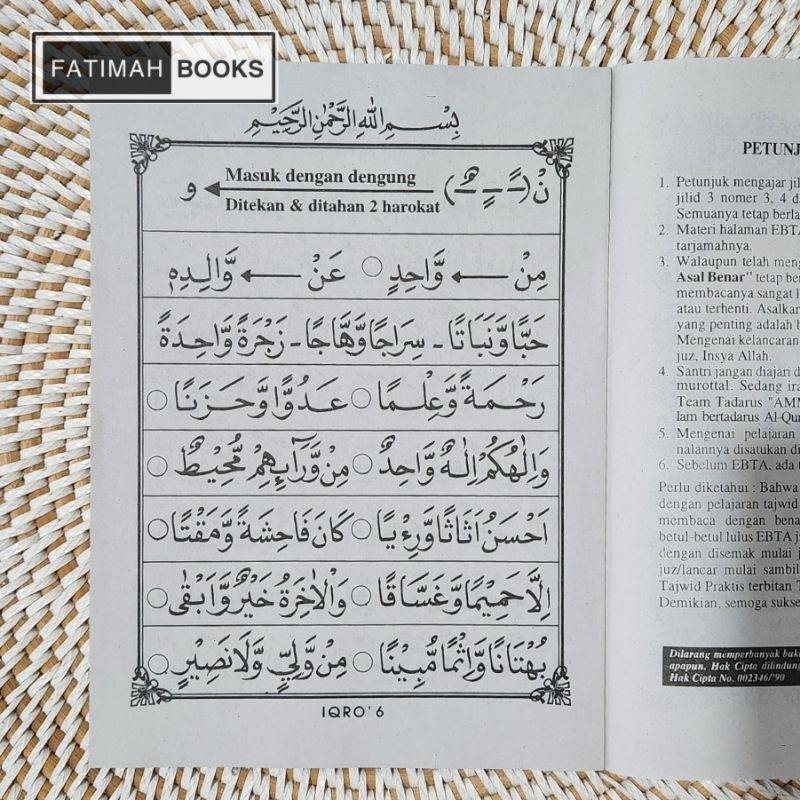 FATIMAH BOOKS
بِسْمِ اللهِ الرَّحْمٰنِ الرَّحِيْمِ
نْ (ـًـ ـٍـ ـٌـ)
Masuk dengan dengung
Ditekan & ditahan 2 harokat
و
مِنْ ← وَّاحِدٍ ○ عَنْ ← وَّالِدِهٖ
حَبًّا وَّنَبَاتًا - سِرَاجًا وَّهَّاجًا - زَجْرَةٌ وَّاحِدَةٌ
رَحْمَةً وَّعِلْمًا ○ عَدُوًّا وَّحَزَنًا ○
وَاِلٰهُكُمْ اِلٰهٌ وَّاحِدٌ ○ مِنْ وَّرَآىِٕهِمْ مُّحِيْطٌ ○
اَحْسَنُ اَثَاثًا وَّرِءْيًا ○ كَانَ فَاحِشَةً وَّمَقْتًا ○
اِلَّا حَمِيْمًا وَّغَسَّاقًا ○ وَالْاٰخِرَةُ خَيْرٌ وَّاَبْقٰى ○
بُهْتَانًا وَّاِثْمًا مُّبِيْنًا ○ مِنْ وَّلِيٍّ وَّلَا نَصِيْرٍ ○
IQRO' 6
PETUNJ
1. Petunjuk mengajar jil
jilid 3 nomer 3, 4 d
Semuanya tetap berla
2. Materi halaman EBTA
tarjamahnya.
3. Walaupun telah meng
Asal Benar" tetap ber
membacanya sangat l
atau terhenti. Asalkan
yang penting adalah b
Mengenai kelancaran
juz, Insya Allah.
4. Santri jangan diajari d
murottal. Sedang ira
Team Tadarus "AMM
lam bertadarus Al-Qur
5. Mengenai pelajaran
nalannya disatukan di
6. Sebelum EBTA, ada
Perlu diketahui : Bahwa
dengan pelajaran tajwid
membaca dengan bena
betul-betul lulus EBTA j
dengan disemak mulai j
juz/lancar mulai sambil
Tajwid Praktis terbitan T
Demikian, semoga sukse
Dilarang memperbanyak buku
apapun. Hak Cipta dilindung
Hak Cipta No. 002346/'90